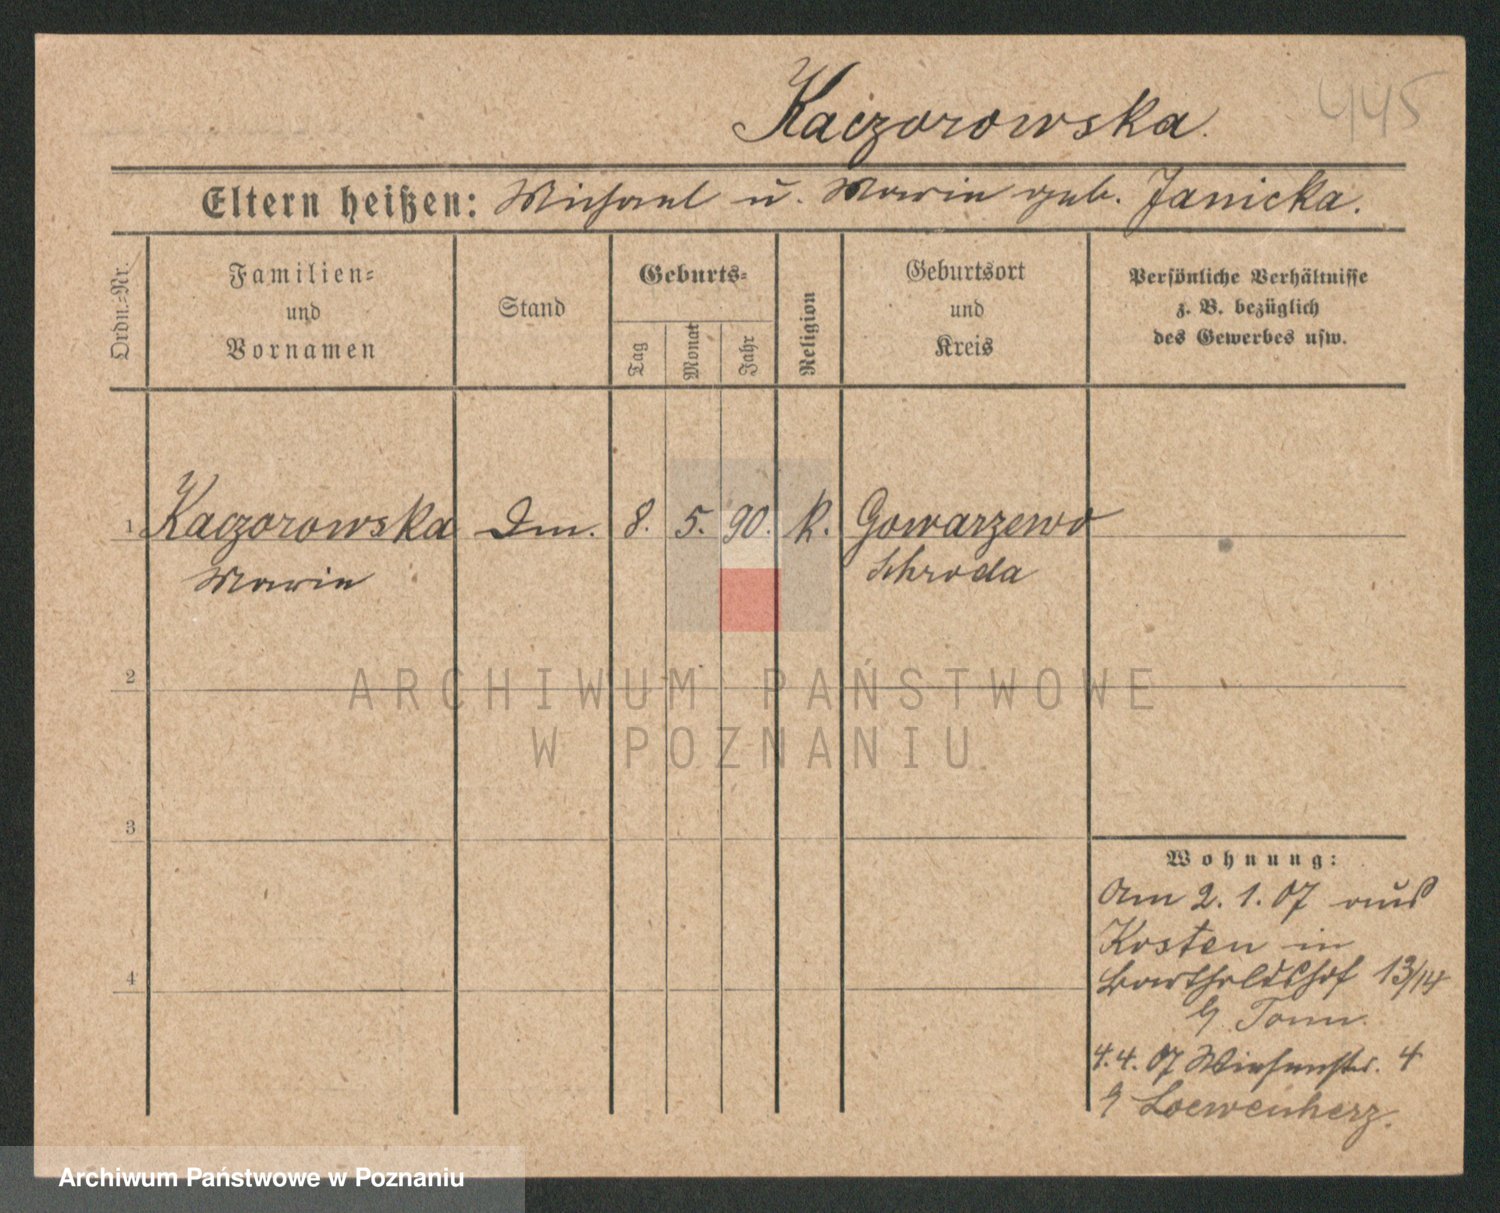 445
Kaczorowska.
Eltern heißen: Michael u. Marie geb. Janicka.
Ordn.-Nr.
Familien-
und
Vornamen
Stand
Geburts-
Tag
Monat
Jahr
Religion
Geburtsort
und
Kreis
Persönliche Verhältnisse
z. B. bezüglich
des Gewerbes usw.
1 Kaczorowska Dm. 8. 5. 90. k. Gowarzewo
Marie Schroda
2
ARCHIWUM PAŃSTWOWE
W POZNANIU
3
Wohnung:
Am 2. 1. 07 aus
Kosten in
4 Bartholdshof 13/14
Tomn.
4. 4. 07 Wiesenstr. 4
Loewenherz.
Archiwum Państwowe w Poznaniu